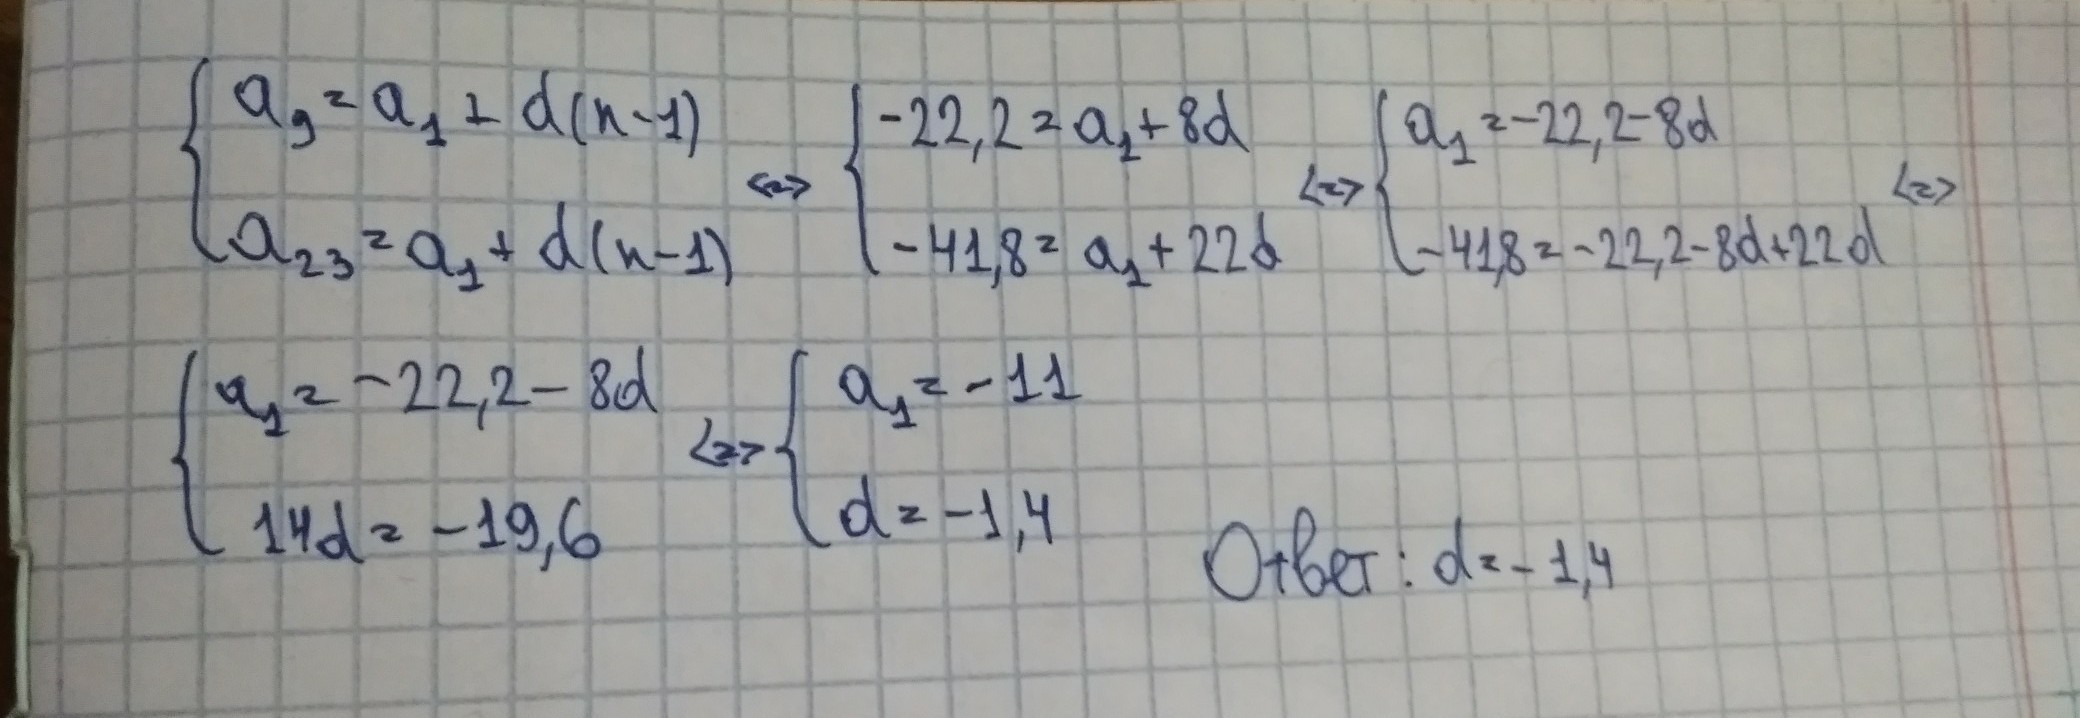 a₉ = a₁ + d(n-1)
a₂₃ = a₁ + d(n-1)
<=>
-22,2 = a₁ + 8d
-41,8 = a₁ + 22d
<=>
a₁ = -22,2 - 8d
-41,8 = -22,2 - 8d + 22d
<=>
a₁ = -22,2 - 8d
14d = -19,6
<=>
a₁ = -11
d = -1,4
Ответ: d = -1,4